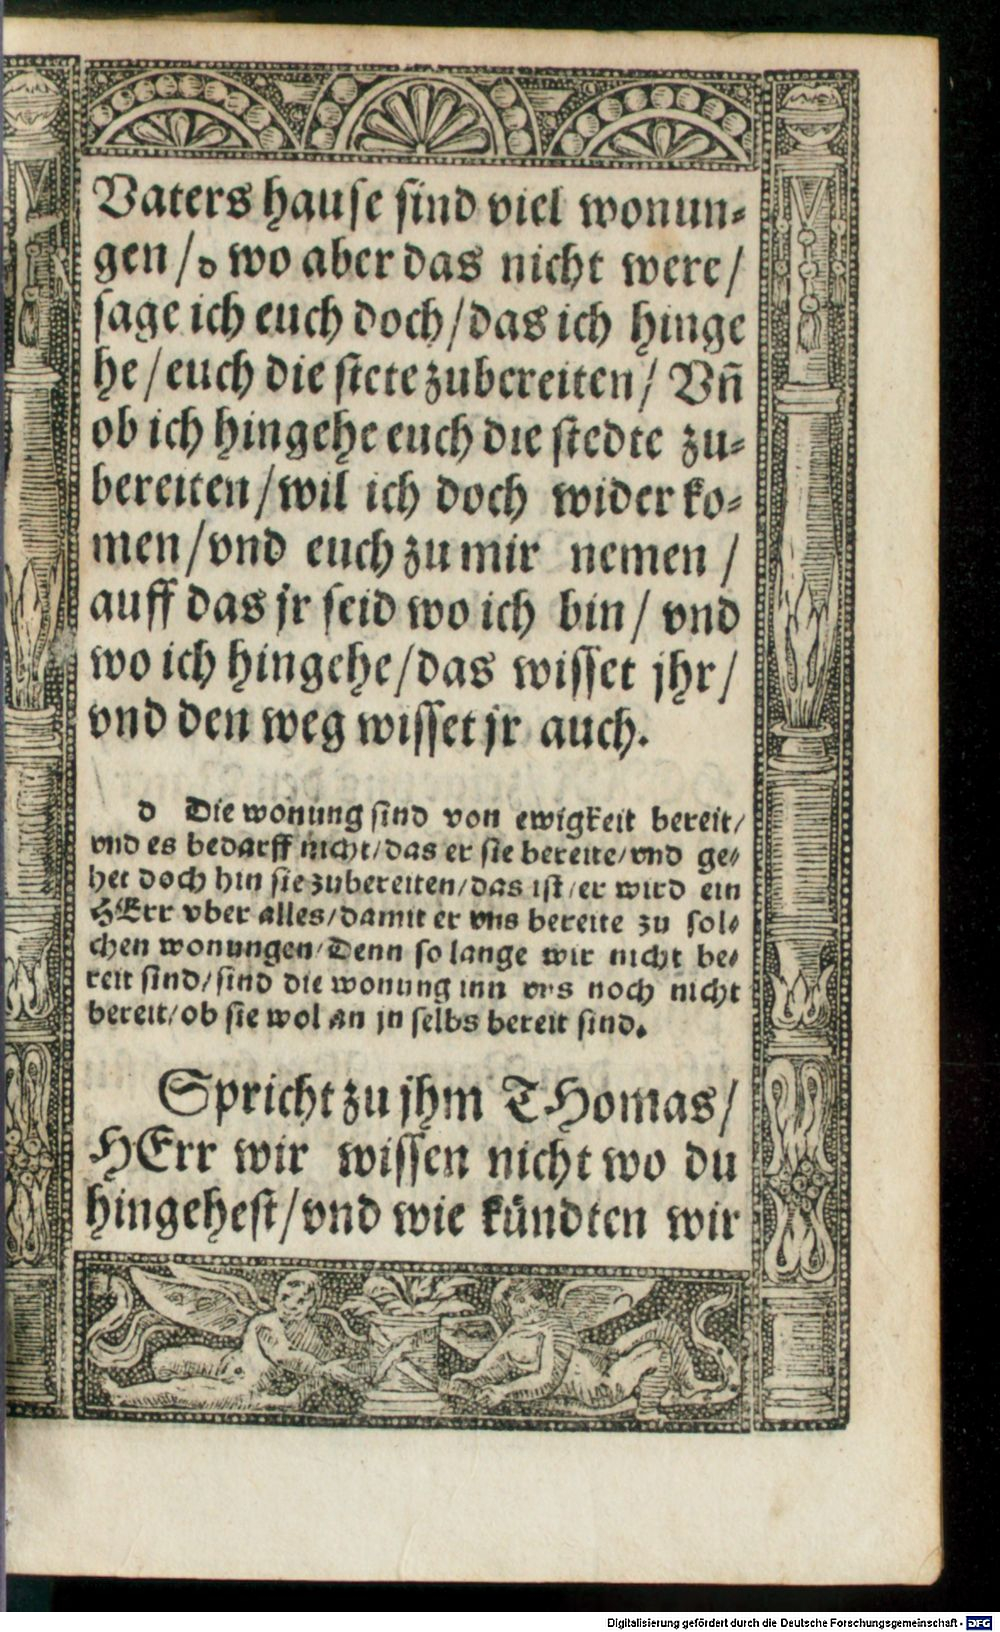 Vaters hause sind viel wonun⸗
gen / d wo aber das nicht were /
sage ich euch doch / das ich hinge
he / euch die stete zubereiten / Vñ
ob ich hingehe euch die stedte zu⸗
bereiten / wil ich doch wider ko⸗
men / vnd euch zu mir nemen /
auff das jr seid wo ich bin / vnd
wo ich hingehe / das wisset jhr /
vnd den weg wisset jr auch.
d Die wonung sind von ewigkeit bereit /
vnd es bedarff nicht / das er sie bereite / vnd ge⸗
het doch hin sie zubereiten / das ist / er wird ein
HErr vber alles / damit er vns bereite zu sol⸗
chen wonungen / Denn so lange wir nicht be⸗
reit sind / sind die wonung inn vns noch nicht
bereit / ob sie wol an jn selbs bereit sind.
Spricht zu jhm THomas /
HErr wir wissen nicht wo du
hingehest / vnd wie kündten wir
Digitalisierung gefördert durch die Deutsche Forschungsgemeinschaft - DFG